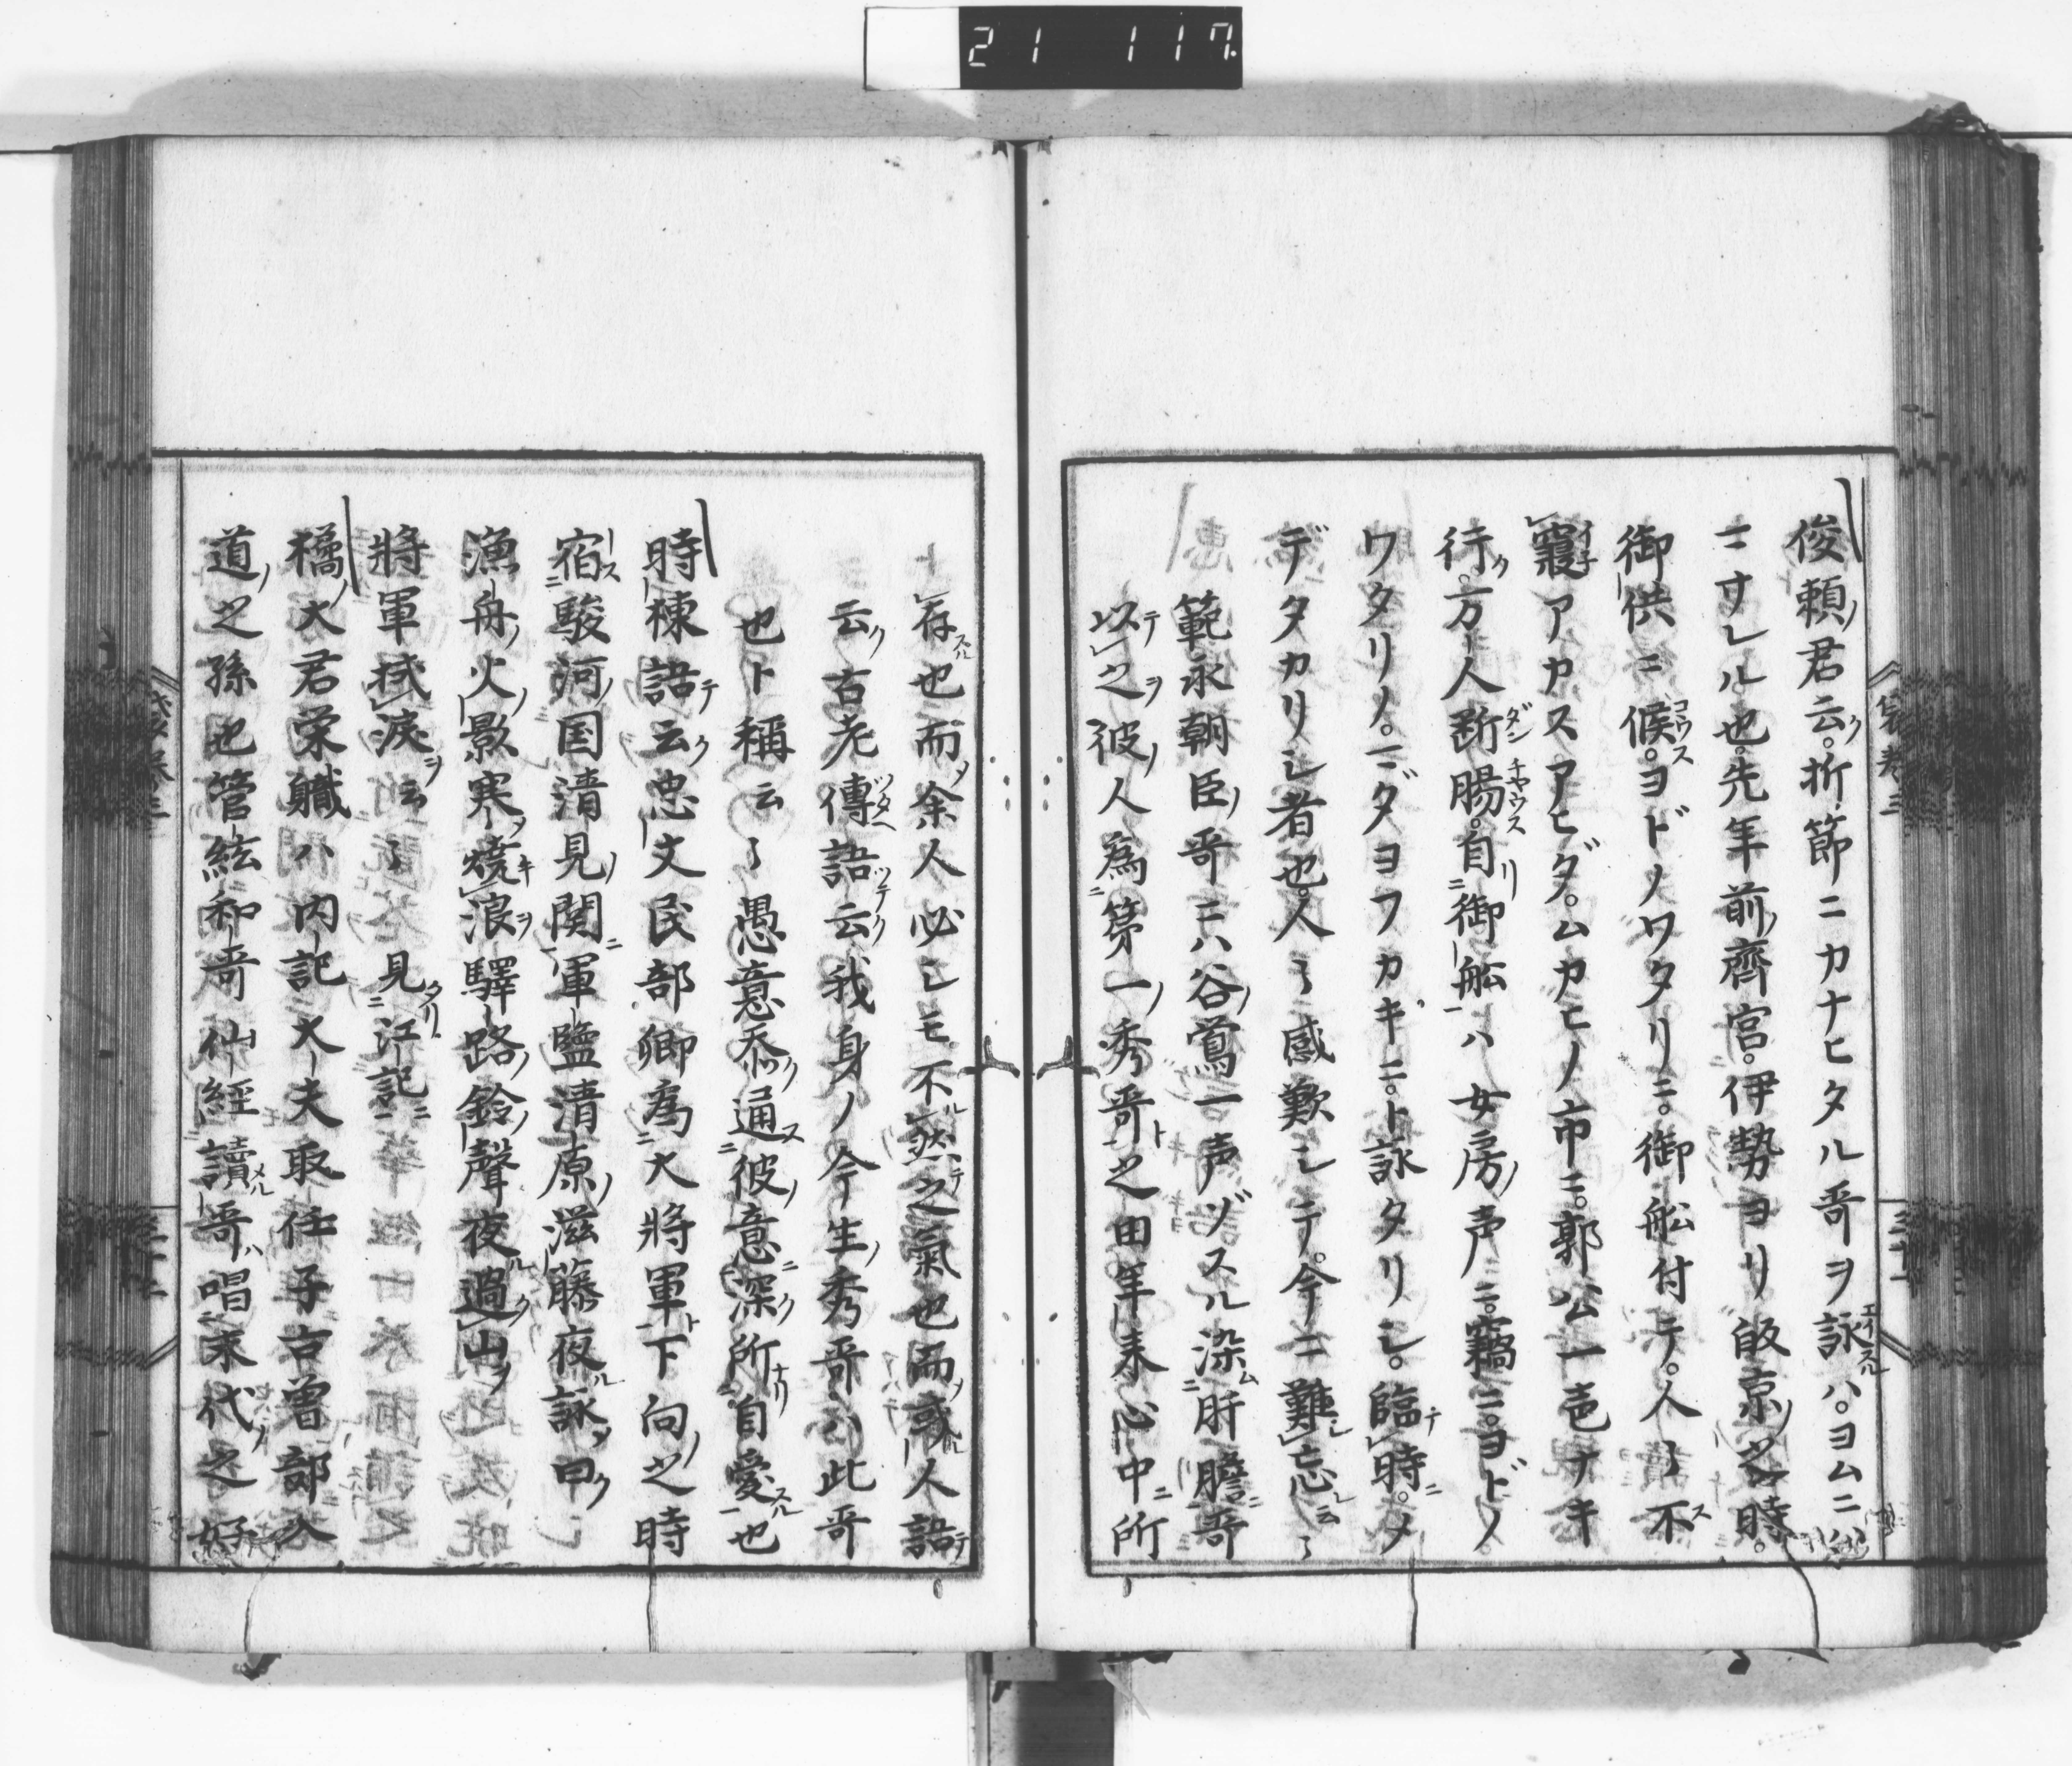 21 117
俊頼君云折節ニカナヒタル哥ヲ詠ハヨムニ
マサレル也先年前齊宮伊勢ヨリ皈京之時
御供ニ候ヨドノワタリニ御舩付テ人〻不
寢アカスアヒダムカヒノ市ニ郭公一声ナキ
行方人断腸自御舩ハ女房声ニ竊ニヨドノ
ワタリノマダヨフカキニト詠タリシ臨時メ
デタカリシ者也人〻感歎シテ今ニ難忘云〻
範永朝臣哥ニハ谷鴬一声ゾスル染肝膽哥
以之彼人為第一秀哥之由年来心中所
存也而余人必シモ不然之氣也而或人語
云古老傳語云我身ノ今生秀哥ハ此哥
也ト稱云〻愚意忝通彼意深所自愛也
時棟語云忠文民部卿為大將軍下向之時
宿駿河国清見関軍監清原滋藤夜詠曰
漁舟火影寒焼浪驛路鈴聲夜過山
將軍拭淚云〻見江記
橘大君栄職ハ内記大夫取任子古曽部入
道之孫也管絃和哥仙經讀哥唱末代之好
袋巻三
三十一